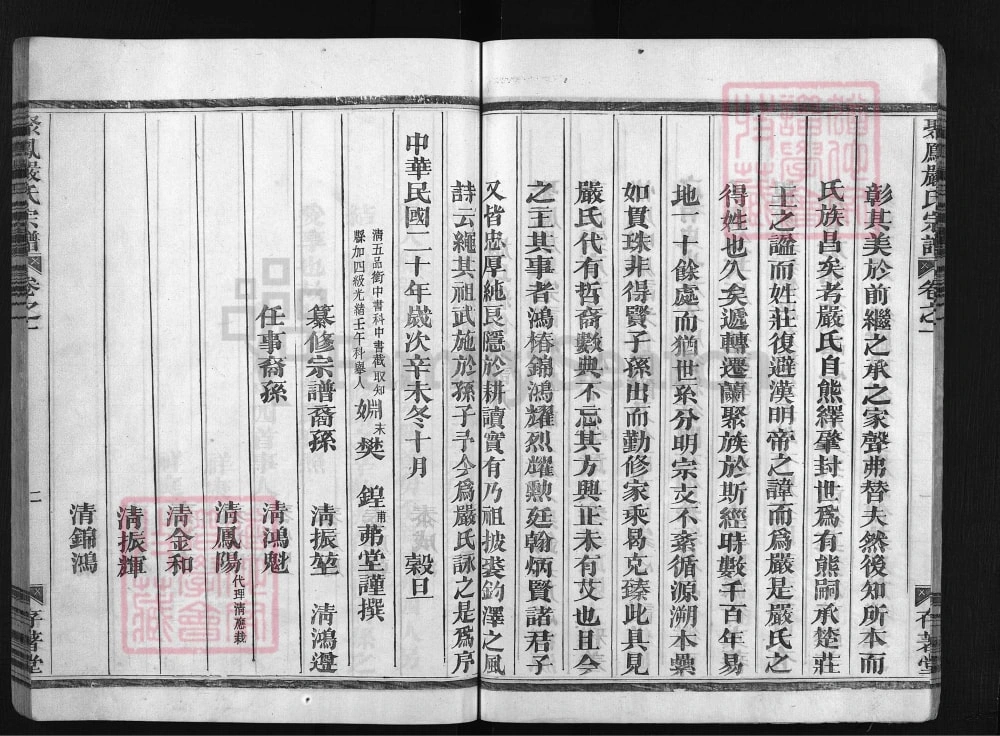 聚鳳嚴氏宗譜 卷之一 存著堂
彰其美於前繼之承之家聲弗替夫然後知所本而
氏族昌矣考嚴氏自熊繹肇封世爲有熊嗣承楚莊
王之謚而姓莊復避漢明帝之諱而爲嚴是嚴氏之
得姓也久矣遞轉遷蘭聚族於斯經時數千百年易
地一十餘處而猶世系分明宗支不紊循源溯本纍
如貫珠非得賢子孫出而勤修家乘曷克臻此具見
嚴氏代有哲裔數典不忘其方興正未有艾也且今
之主其事者鴻椿錦鴻耀烈耀勲廷翰炳賢諸君子
又皆忠厚純良隱於耕讀實有乃祖披裘釣澤之風
詩云繩其祖武施於孫子予今爲嚴氏詠之是爲序
中華民國二十年歲次辛未冬十月 穀旦
清五品銜中書科中書截取知
縣加四級光緒壬午科舉人 婣末樊鍠甫茀堂謹撰
纂修宗譜裔孫 清振堃 清鴻遵
任事裔孫 清鴻魁
清鳳陽代理清應栽
清金和
清振輝
清錦鴻
聚鳳嚴氏宗譜 卷之一 二 存著堂